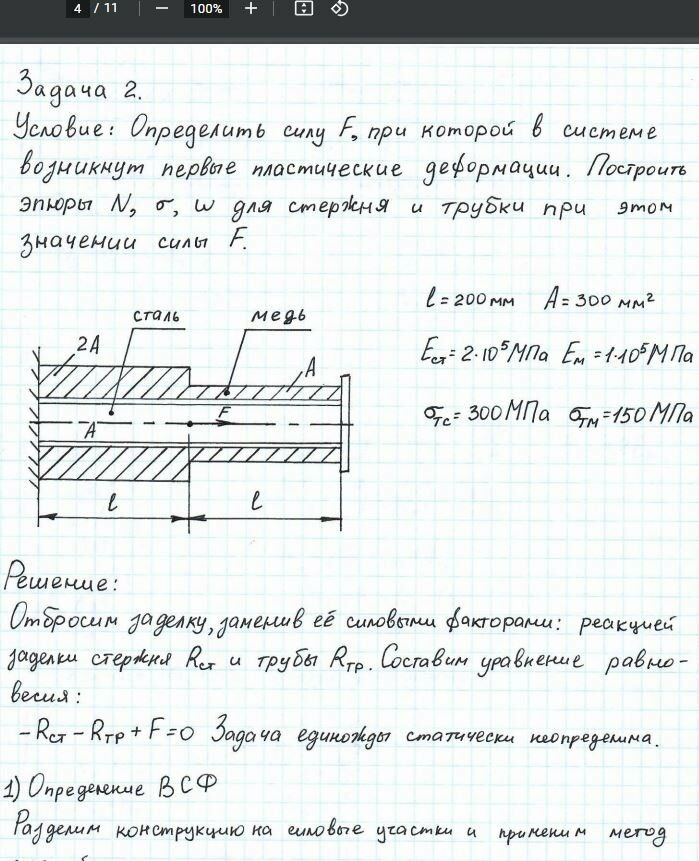 4 / 11 — 100% +
Задача 2.
Условие: Определить силу F, при которой в системе
возникнут первые пластические деформации. Построить
эпюры N, σ, w для стержня и трубки при этом
значении силы F.
сталь медь
2A A
A F
l l
l = 200 мм A = 300 мм²
Eст = 2·10⁵ МПа Eм = 1·10⁵ МПа
σтс = 300 МПа σтм = 150 МПа
Решение:
Отбросим заделку, заменив её силовыми факторами: реакцией
заделки стержня Rст и трубы Rтр. Составим уравнение равно-
весия:
-Rст - Rтр + F = 0 Задача единожды статически неопределима.
1) Определение ВСФ
Разделим конструкцию на силовые участки и применим метод